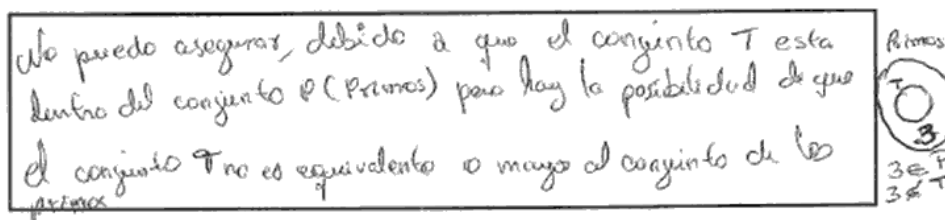 No puedo asegurar, debido a que el conjunto T esta
dentro del conjunto P (Primos) pero hay la posibilidad de que
el conjunto T no es equivalente o mayo al conjunto de los
primos
Primos
T
3
3 ∈ P
3 ∉ T